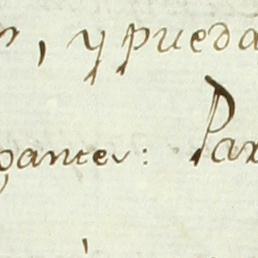 , y pueda
gantes: Par